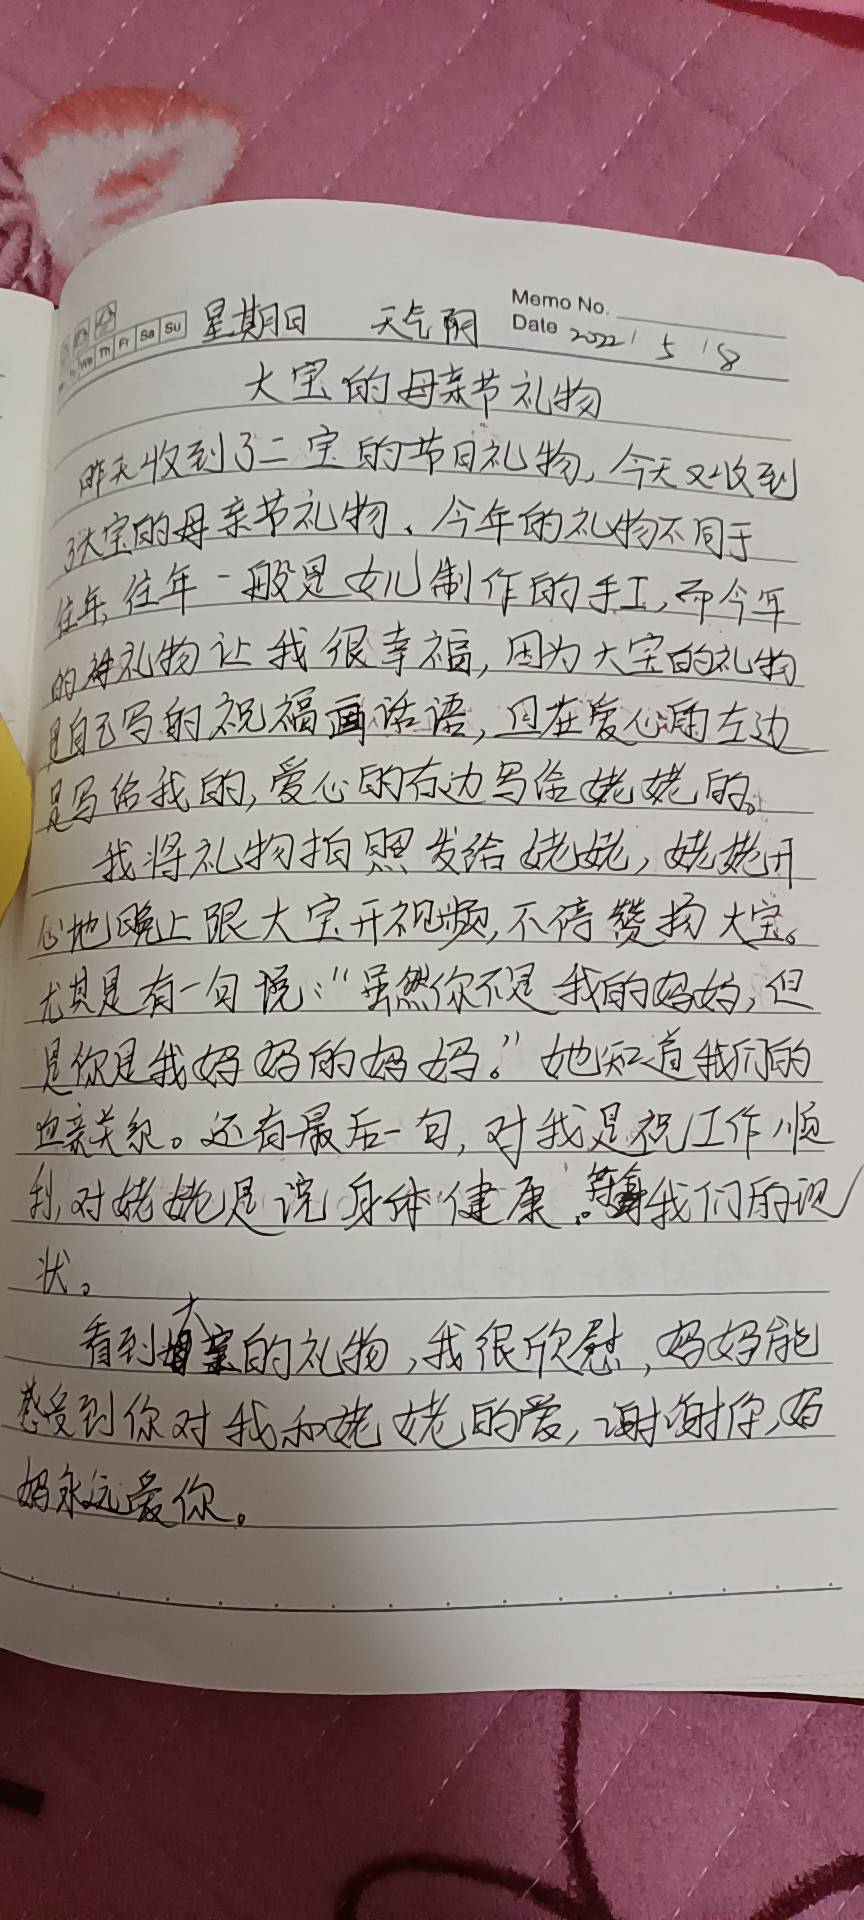 Memo No.
We Th Fr Sa Su 星期日 天气阴 Date 2022/5/8
大宝的母亲节礼物
昨天收到了二宝的节日礼物,今天又收到
了大宝的母亲节礼物、今年的礼物不同于
往年,往年一般是女儿制作的手工,而今年
的礼物让我很幸福,因为大宝的礼物
是自己写的祝福画话语,且在爱心的左边
是写给我的,爱心的右边写给姥姥的。
我将礼物拍照发给姥姥,姥姥开
心地晚上跟大宝开视频,不停赞扬大宝。
尤其是有一句说:“虽然你不是我的妈妈,但
是你是我妈妈的妈妈。”她知道我们的
血亲关系。还有最后一句,对我是祝工作顺
利,对姥姥是说身体健康。我们的现
状。
看到大宝的礼物,我很欣慰,妈妈能
感受到你对我和姥姥的爱,谢谢你,妈
妈永远爱你。